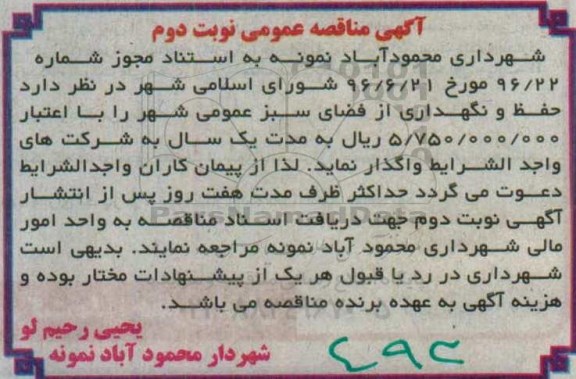 آگهی مناقصه عمومی نوبت دوم
شهرداری محمودآباد نمونه به استناد مجوز شماره
۹۶/۲۲ مورخ ۹۶/۶/۲۱ شورای اسلامی شهر در نظر دارد
حفظ و نگهداری از فضای سبز عمومی شهر را با اعتبار
۵/۷۵۰/۰۰۰/۰۰۰ ریال به مدت یک سال به شرکت های
واجد الشرایط واگذار نماید. لذا از پیمان کاران واجدالشرایط
دعوت می گردد حداکثر ظرف مدت هفت روز پس از انتشار
آگهی نوبت دوم جهت دریافت اسناد مناقصه به واحد امور
مالی شهرداری محمود آباد نمونه مراجعه نمایند. بدیهی است
شهرداری در رد یا قبول هر یک از پیشنهادات مختار بوده و
هزینه آگهی به عهده برنده مناقصه می باشد.
یحیی رحیم لو
شهردار محمود آباد نمونه